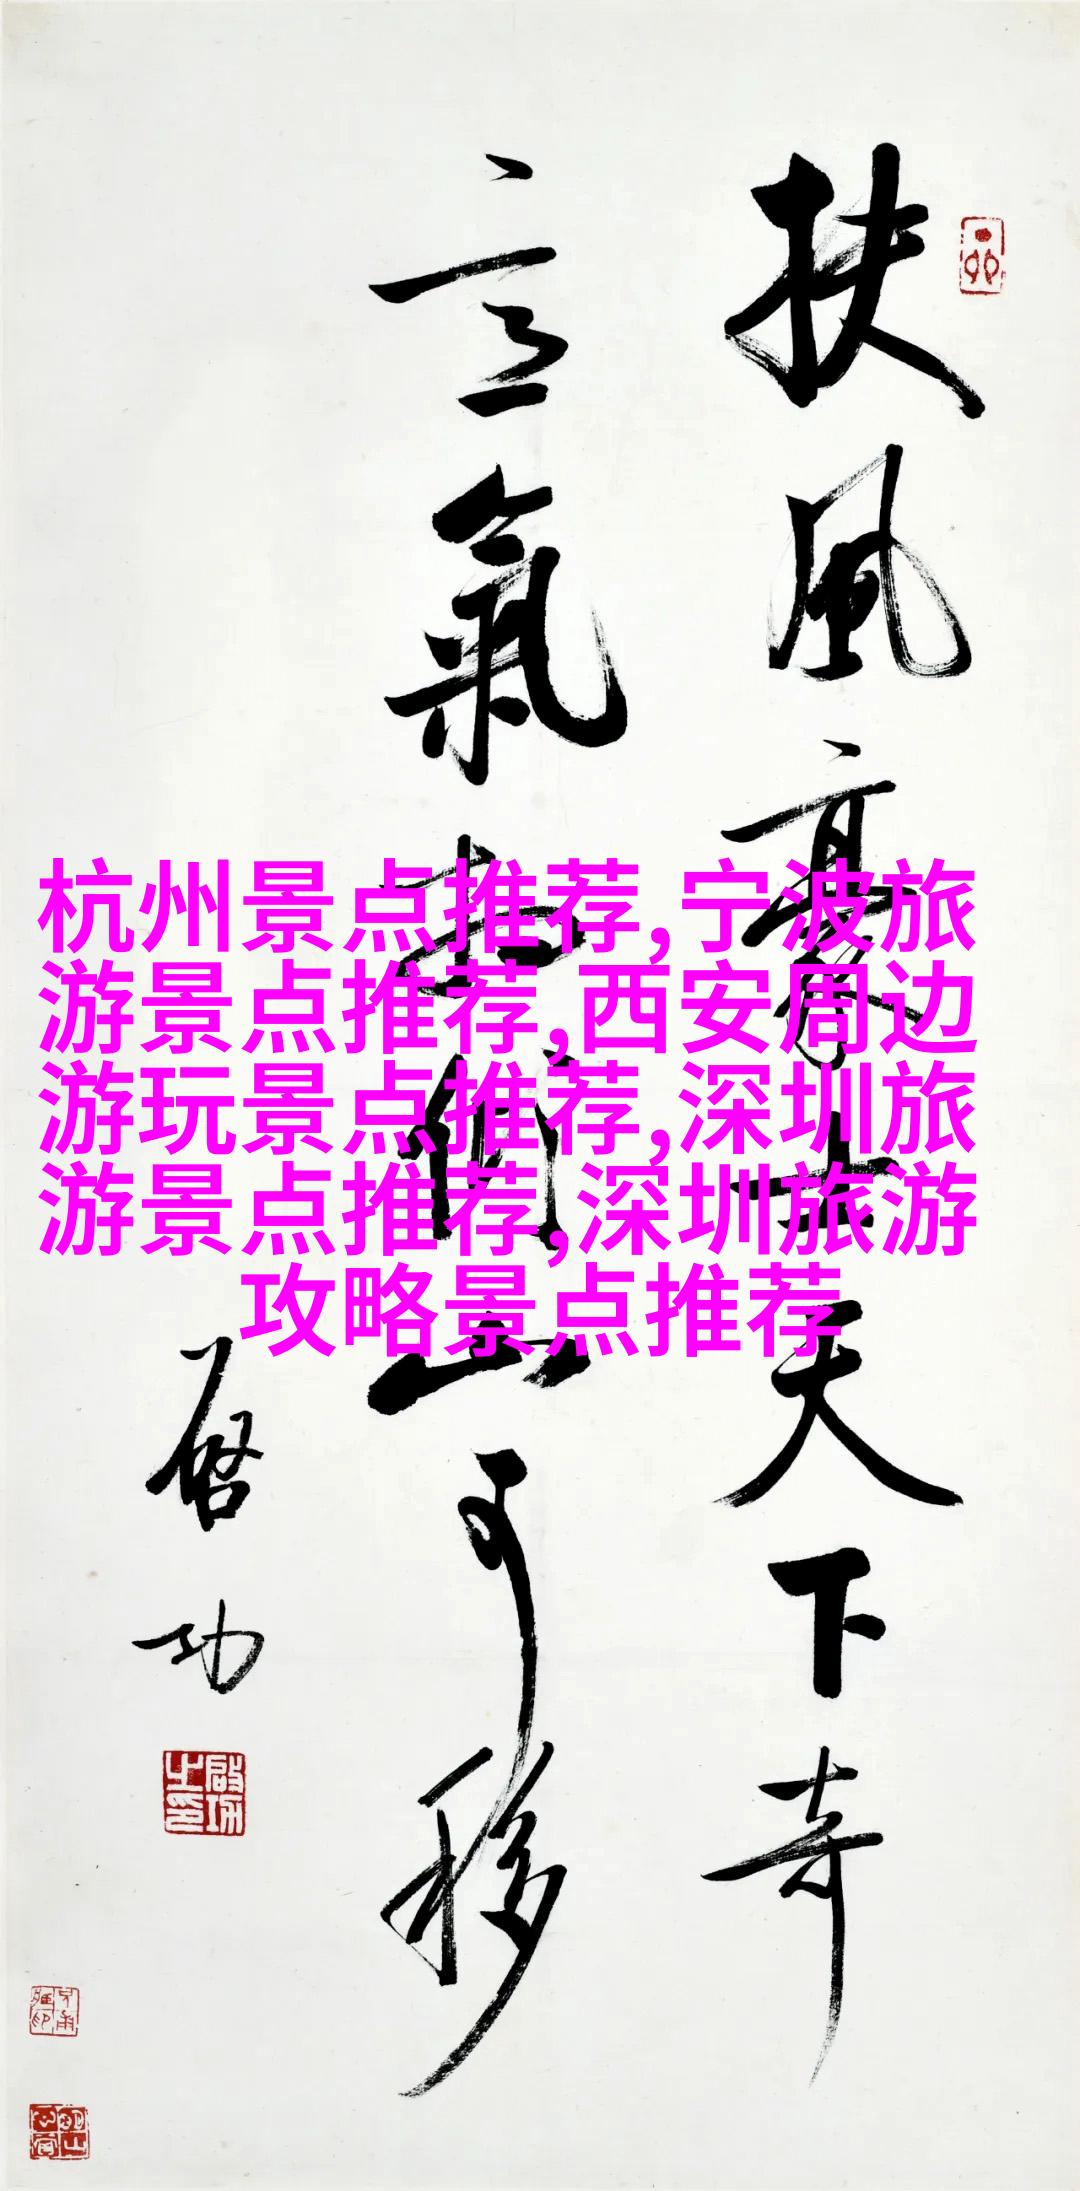 扶風豪士天下奇
意氣相傾山可移
启功
啟功之印
杭州景点推荐,宁波旅
游景点推荐,西安周边
游玩景点推荐,深圳旅
游景点推荐,深圳旅游
攻略景点推荐